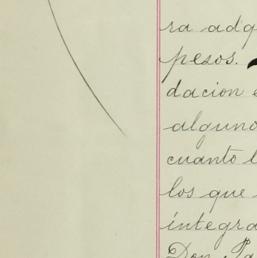 ra adq
pesos.
dacion e
alguno
cuanto l
los que
íntegra
Don Pa